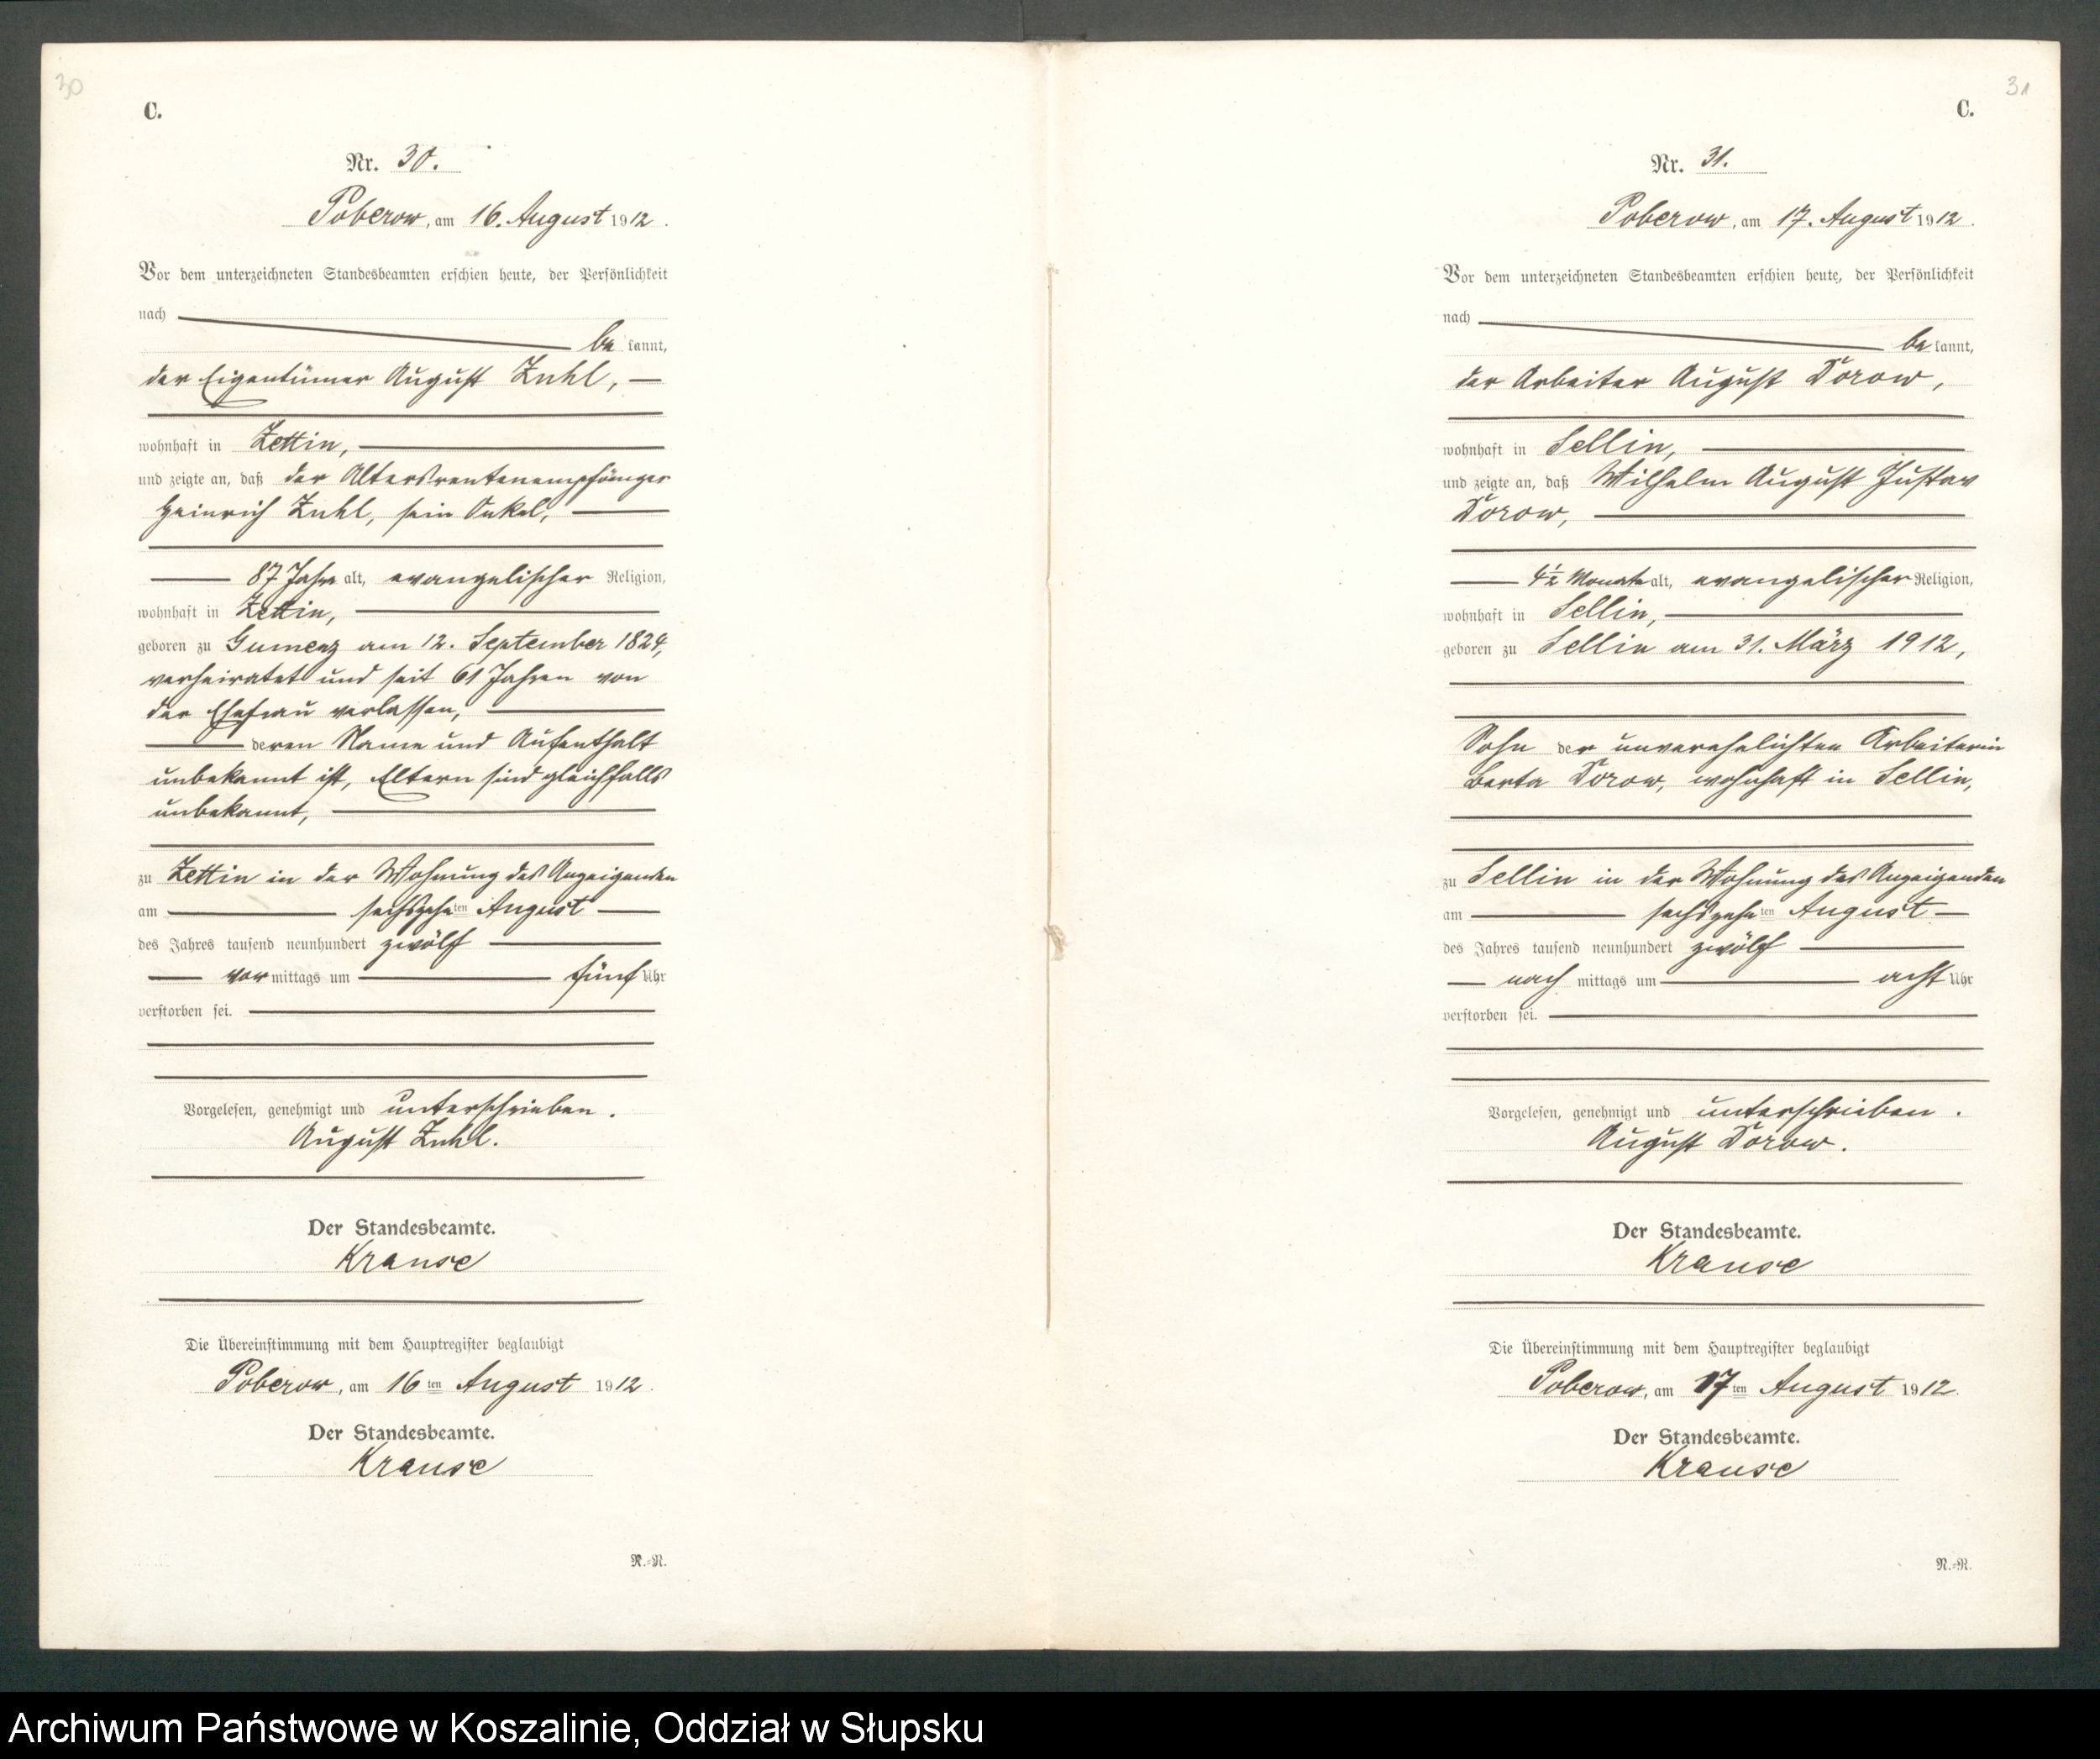 30
C.
Nr. 30.
Poberow, am 16. August 1912.
Vor dem unterzeichneten Standesbeamten erschien heute, der Persönlichkeit
nach
be kannt,
der Eigentümer August Zuhl,
wohnhaft in Zettin,
und zeigte an, daß der Altersrentenempfänger
Heinrich Zuhl, sein Onkel,
87 Jahre alt, evangelischer Religion,
wohnhaft in Zettin,
geboren zu Gumenz am 12. September 1824,
verheiratet und seit 61 Jahren von
der Ehefrau verlassen,
deren Name und Aufenthalt
unbekannt ist, Eltern sind gleichfalls
unbekannt,
zu Zettin in der Wohnung des Anzeigenden
am sechszehnten August
des Jahres tausend neunhundert zwölf
vor mittags um fünf Uhr
verstorben sei.
Vorgelesen, genehmigt und unterschrieben.
August Zuhl.
Der Standesbeamte.
Krause
Die Übereinstimmung mit dem Hauptregister beglaubigt
Poberow, am 16ten August 1912.
Der Standesbeamte.
Krause
R.=N.
31
C.
Nr. 31.
Poberow, am 17. August 1912.
Vor dem unterzeichneten Standesbeamten erschien heute, der Persönlichkeit
nach
be kannt,
der Arbeiter August Dorow,
wohnhaft in Sellin,
und zeigte an, daß Wilhelm August Gustav
Dorow,
4½ Monate alt, evangelischer Religion,
wohnhaft in Sellin,
geboren zu Sellin am 31. März 1912,
Sohn der unverehelichten Arbeiterin
Berta Dorow, wohnhaft in Sellin,
zu Sellin in der Wohnung des Anzeigenden
am sechszehnten August
des Jahres tausend neunhundert zwölf
nach mittags um acht Uhr
verstorben sei.
Vorgelesen, genehmigt und unterschrieben.
August Dorow.
Der Standesbeamte.
Krause
Die Übereinstimmung mit dem Hauptregister beglaubigt
Poberow, am 17ten August 1912.
Der Standesbeamte.
Krause
R.=N.
Archiwum Państwowe w Koszalinie, Oddział w Słupsku